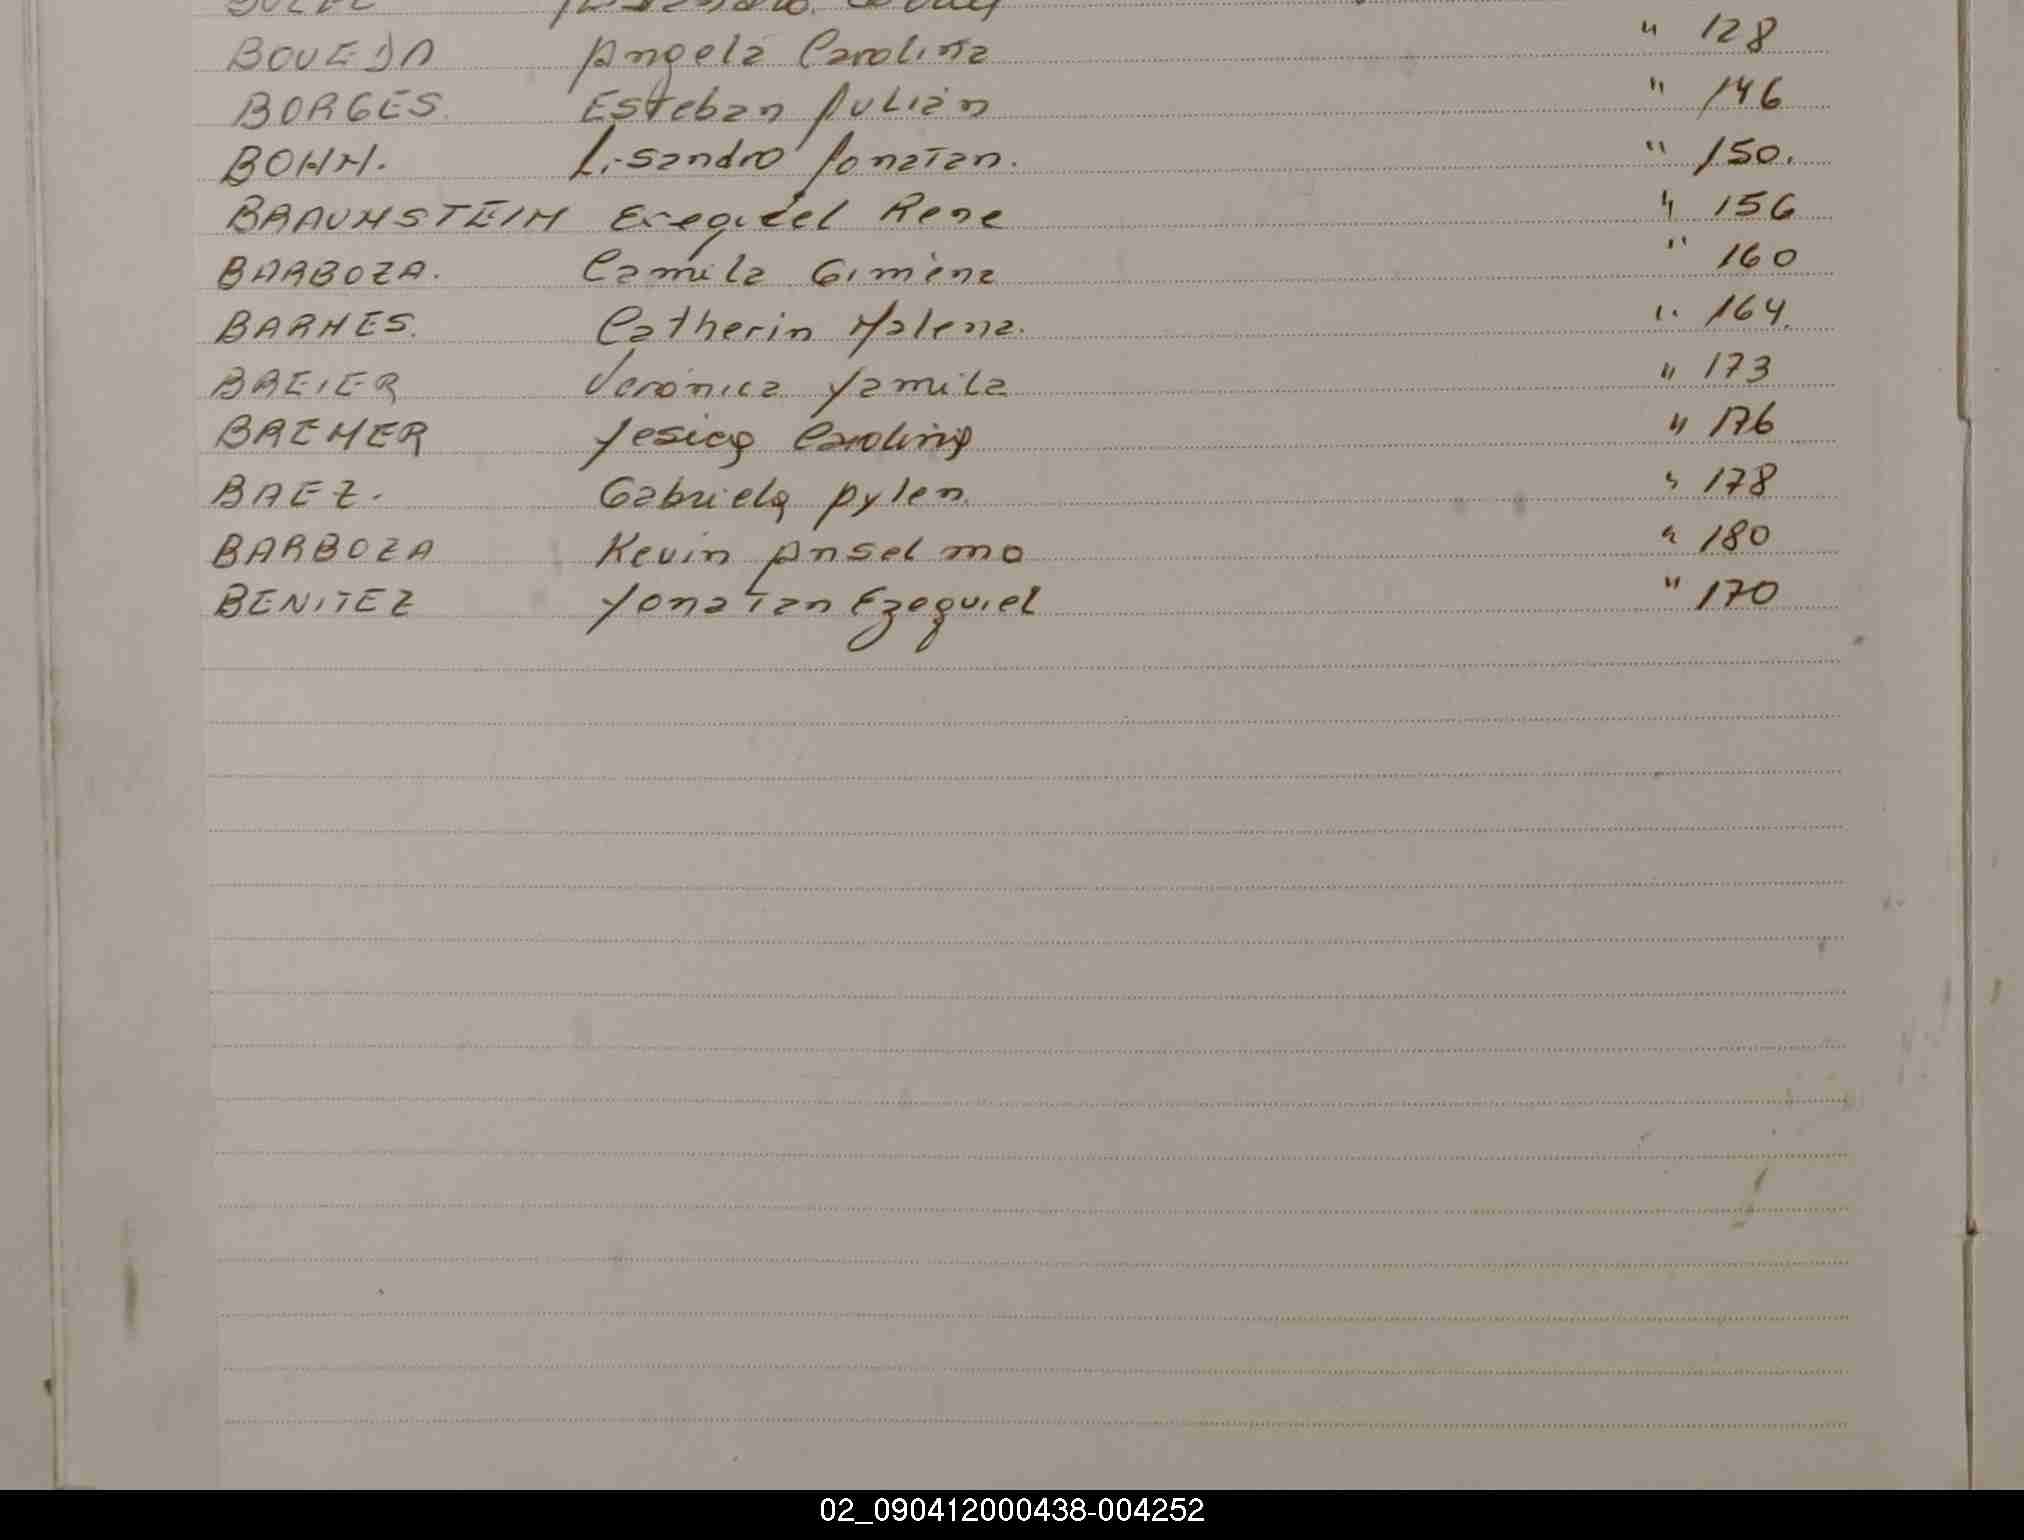 BOVEDA Angela Carolina " 128
BORGES. Esteban Julián " 146
BOHN. Lisandro Jonatan. " 150.
BRAUNSTEIN Exequiel Rene " 156
BARBOZA. Camila Gimena " 160
BARNES. Catherin Malena. " 164.
BREIER Verónica Yamila " 173
BREMER Yesica Carolina " 176
BAEZ. Gabriela Aylen " 178
BARBOZA Kevin Anselmo " 180
BENITEZ Yonatan Ezequiel " 170
02_090412000438-004252